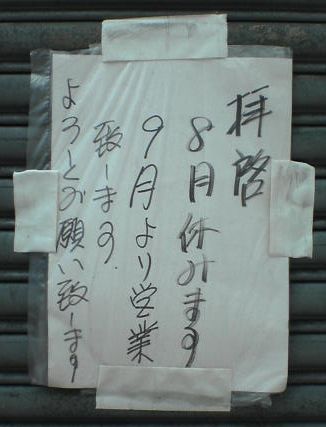 拝啓
8月休みます
9月より営業
致します.
よろしくお願い致します